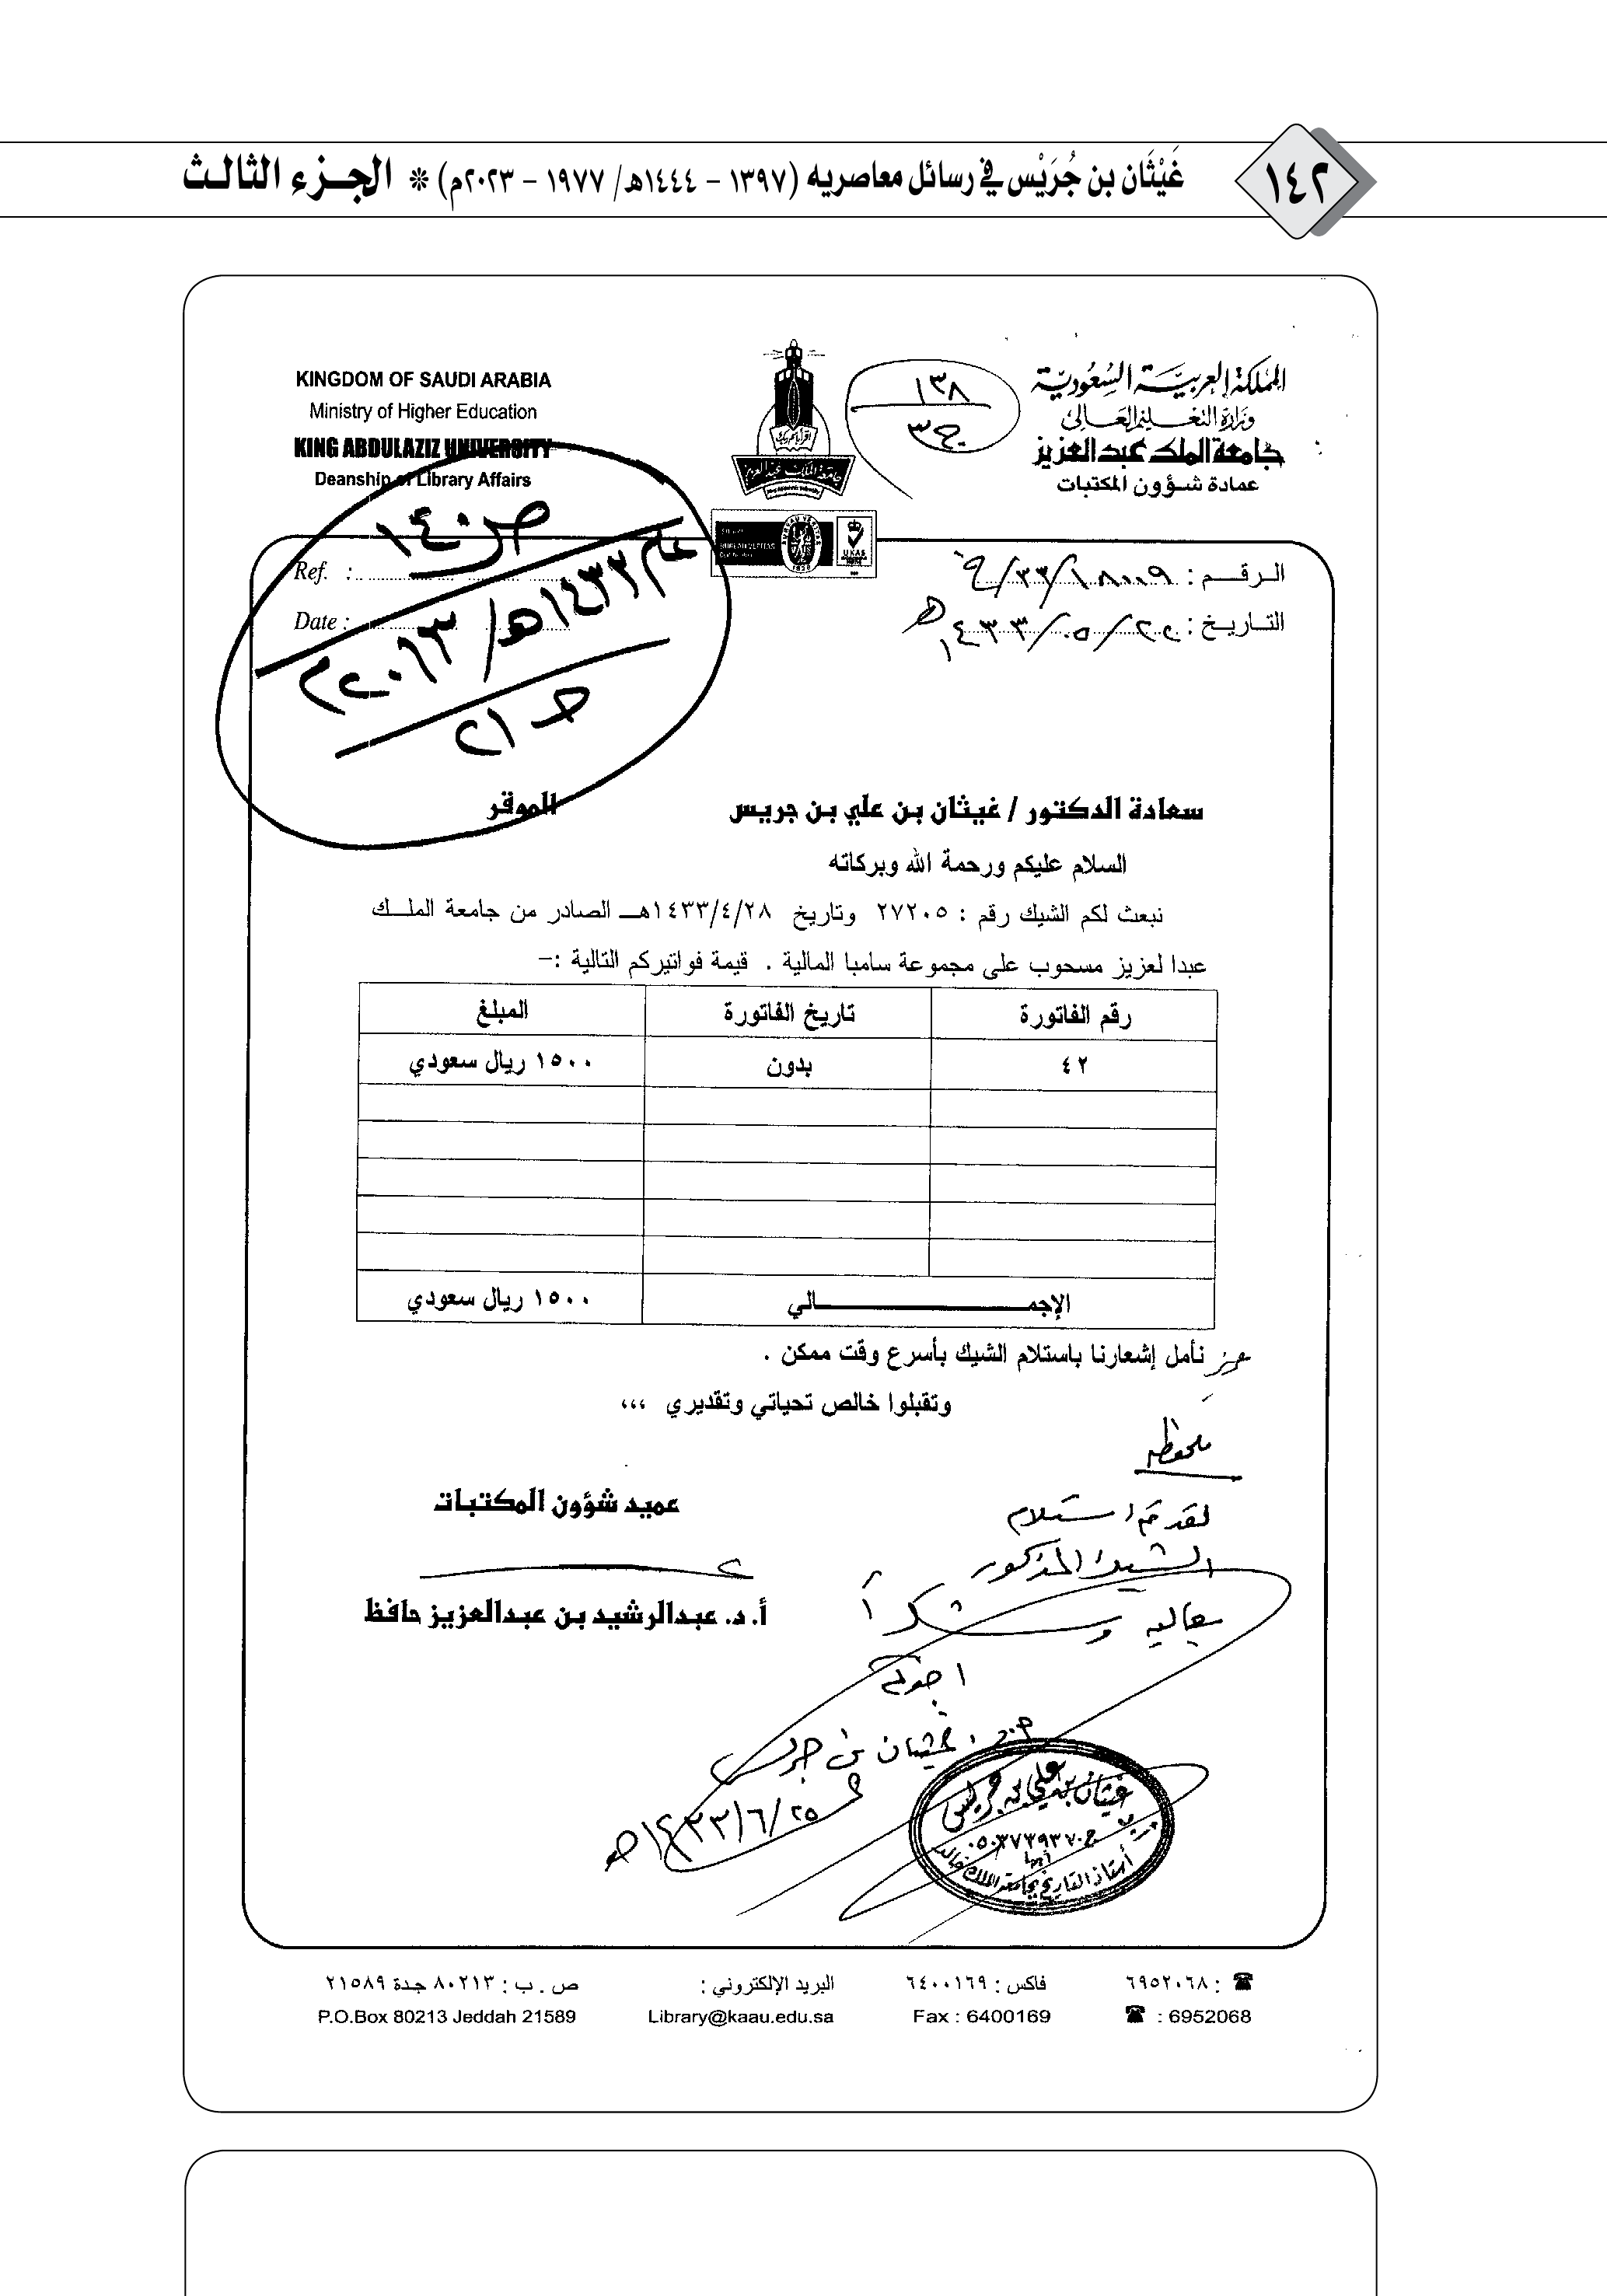 ١٤٢
غَيْثَان بن جُرَيْس في رسائل معاصريه (١٣٩٧ - ١٤٤٤هـ/ ١٩٧٧ - ٢٠٢٣م) * الجزء الثالث
المملكة العربية السعودية
وزارة التعليم العالي
جامعة الملك عبد العزيز
عمادة شؤون المكتبات
١٣٨
ج٣
KINGDOM OF SAUDI ARABIA
Ministry of Higher Education
KING ABDULAZIZ UNIVERSITY
Deanship of Library Affairs
الرقم : ١٨٠٠٩/٣٣/
التاريخ : ٢٢/٠٥/١٤٣٣هـ
Ref. :
Date :
ص ١٤٠
عام ١٤٣٣هـ/ ٢٠١٣م
حـ ٢١
سعادة الدكتور / غيثان بن علي بن جريس الموقر
السلام عليكم ورحمة الله وبركاته
نبعث لكم الشيك رقم : ٢٧٢٠٥ وتاريخ ١٤٣٣/٤/٢٨هـ الصادر من جامعة الملك
عبدا لعزيز مسحوب على مجموعة سامبا المالية . قيمة فواتيركم التالية :-
رقم الفاتورة تاريخ الفاتورة المبلغ
٤٢ بدون ١٥٠٠ ريال سعودي
الإجمالي ١٥٠٠ ريال سعودي
نأمل إشعارنا باستلام الشيك بأسرع وقت ممكن .
وتقبلوا خالص تحياتي وتقديري ،،،
عميد شؤون المكتبات
أ. د. عبدالرشيد بن عبدالعزيز حافظ
ملحوظه
لقد تم استلام
الشيك المذكور
بعاليه وشكراً
اخوكم
غيثان بن جريس
٢٥/٦/١٤٣٣هـ
غيثان بن علي بن جريس
أستاذ التاريخ بجامعة الملك خالد
☎ : ٦٩٥٢٠٦٨ فاكس : ٦٤٠٠١٦٩ البريد الإلكتروني : ص . ب : ٨٠٢١٣ جدة ٢١٥٨٩
P.O.Box 80213 Jeddah 21589 Library@kaau.edu.sa Fax : 6400169 ☎ : 6952068